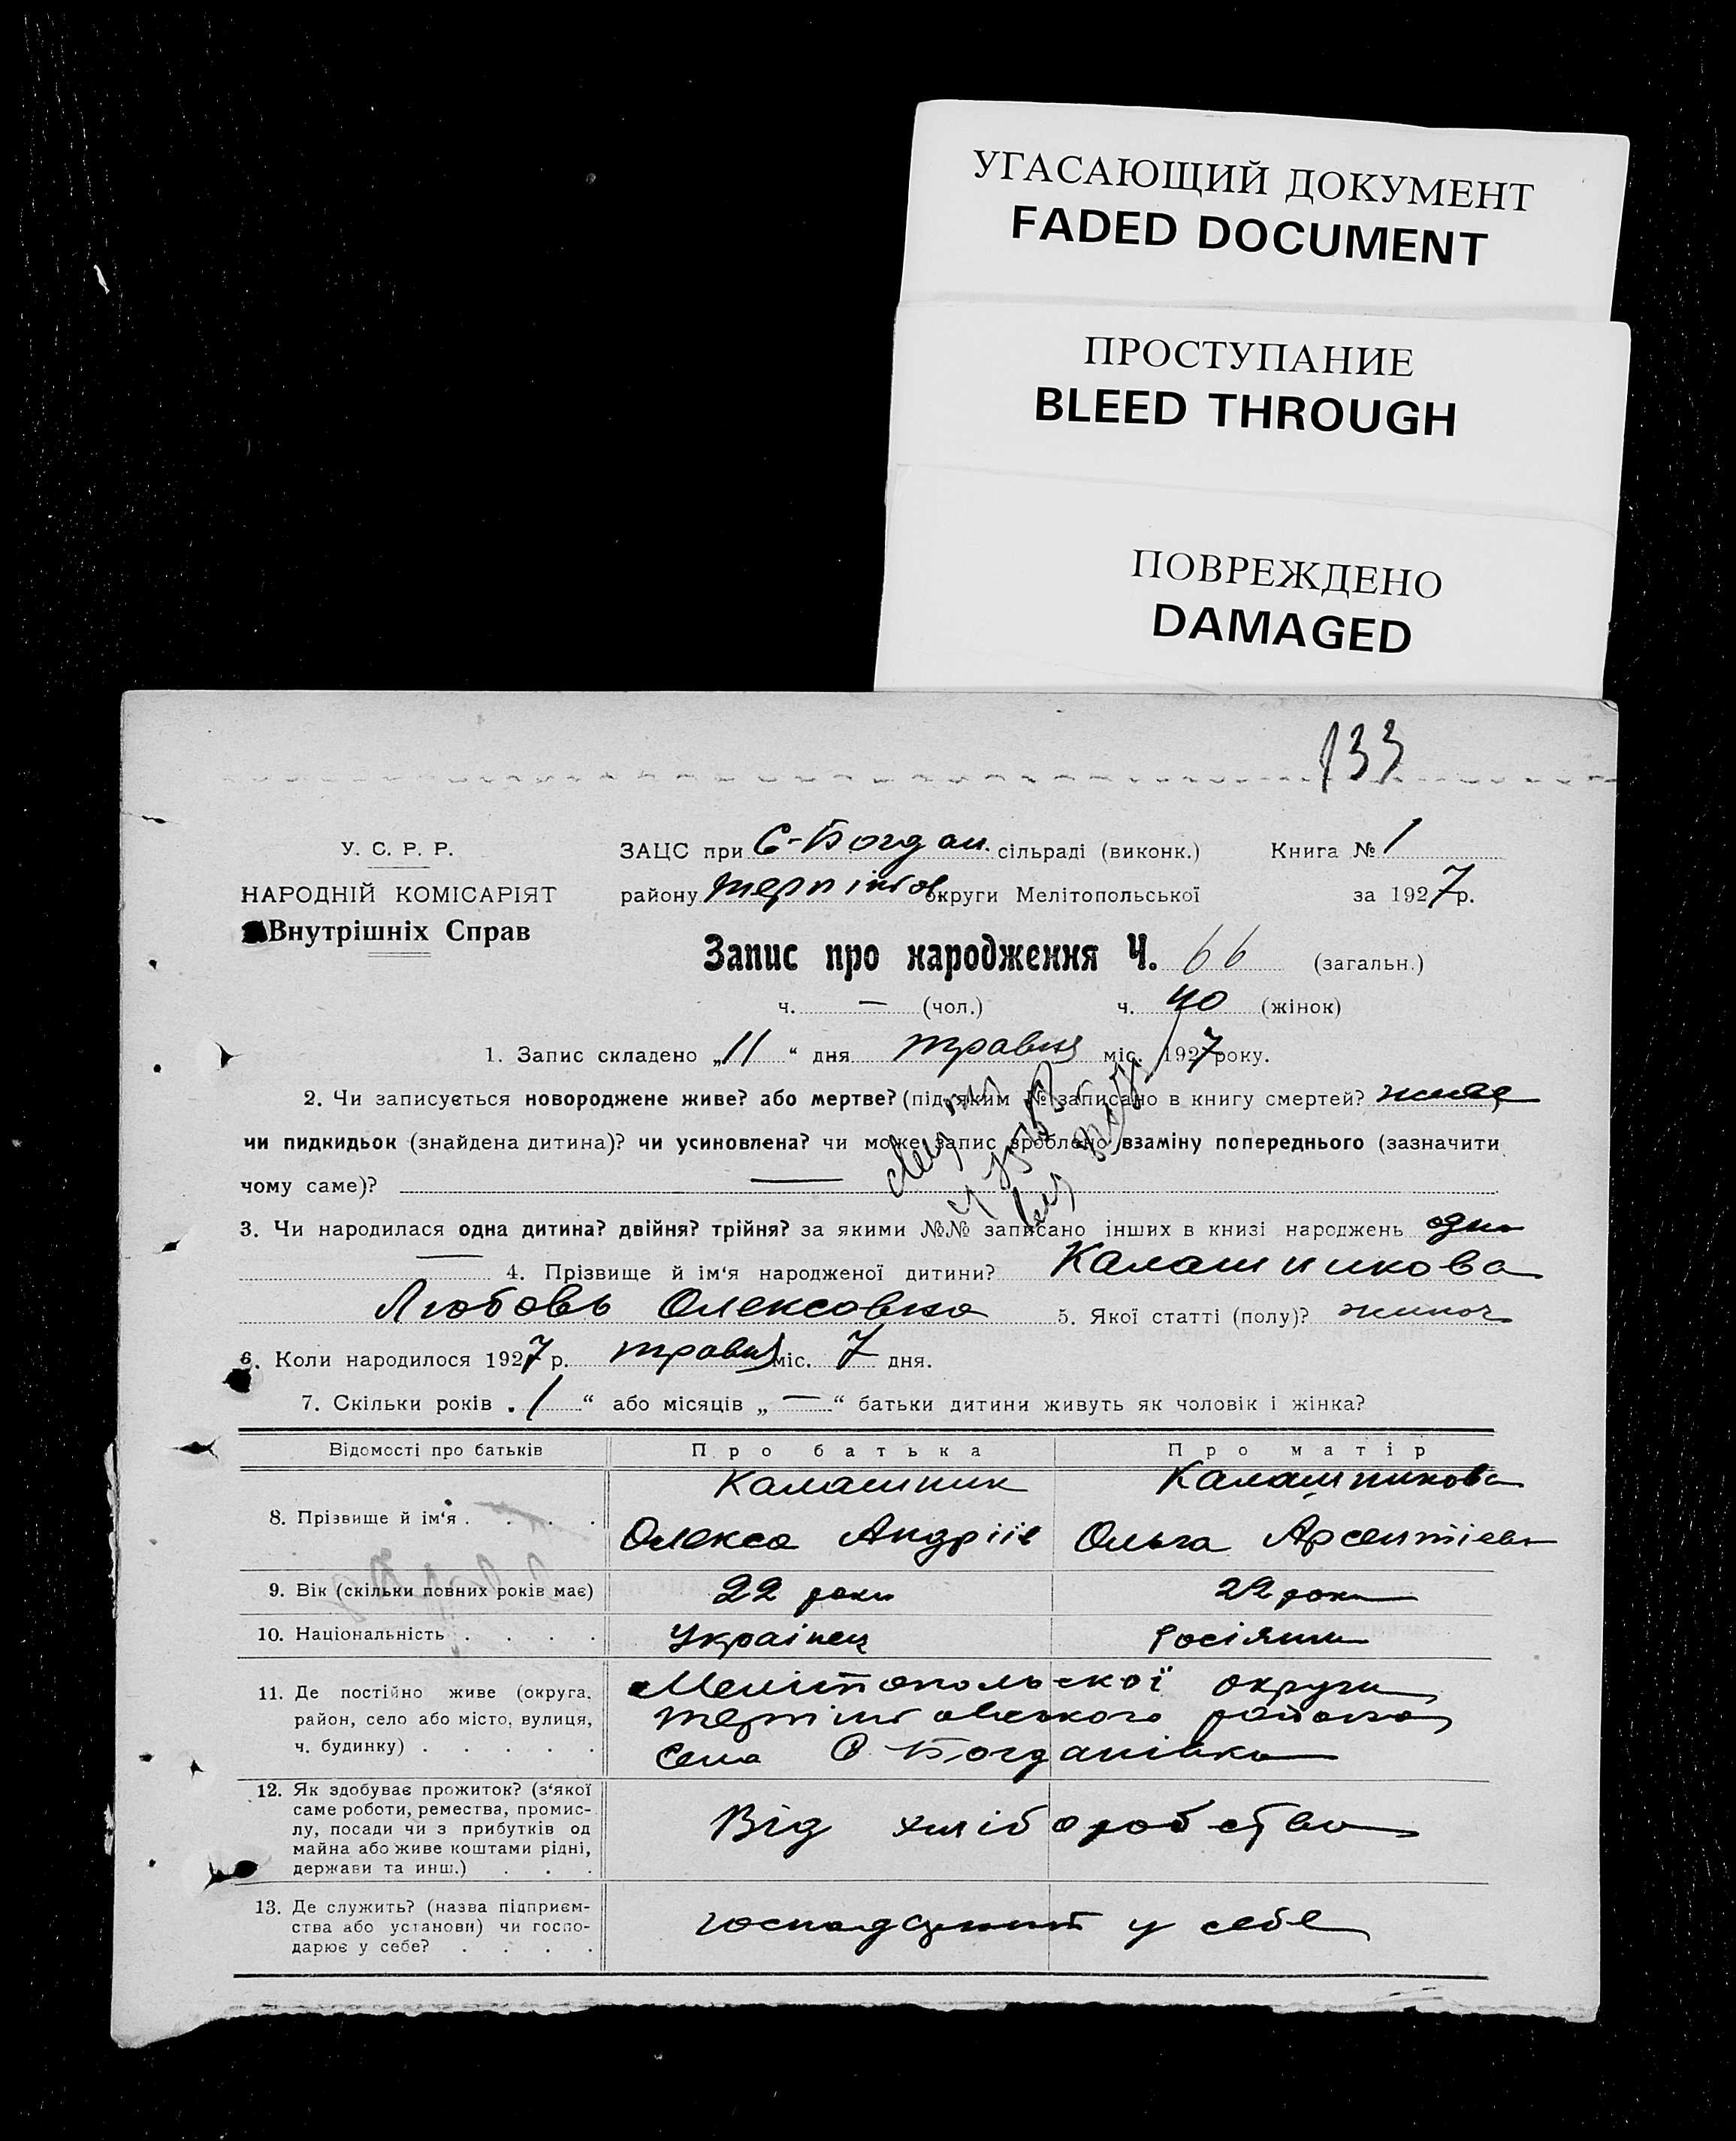 УГАСАЮЩИЙ ДОКУМЕНТ
FADED DOCUMENT
ПРОСТУПАНИЕ
BLEED THROUGH
ПОВРЕЖДЕНО
DAMAGED
133
У. С. Р. Р.
НАРОДНІЙ КОМІСАРІЯТ
Внутрішніх Справ
ЗАЦС при С-Богдан. сільраді (виконк.)
району округи Мелітопольської
Книга № 1
за 1927 р.
Запис про народження Ч. 66 (загальн.)
ч. — (чол.) ч. 40 (жінок)
1. Запис складено „11“ дня травня міс. 1927 року.
2. Чи записується новороджене живе? або мертве? (під яким № записано в книгу смертей? живе
чи пидкидьок (знайдена дитина)? чи усиновлена? чи може запис зроблено взаміну попереднього (зазначити
чому саме)? —
3. Чи народилася одна дитина? двійня? трійня? за якими №№ записано інших в книзі народжень одна
— 4. Прізвище й ім‘я народженої дитини? Калашникова
Любовь Олексовна 5. Якої статті (полу)? жиноч
6. Коли народилося 1927 р. травня міс. 7 дня.
7. Скільки років „1“ або місяців „—“ батьки дитини живуть як чоловік і жінка?
Відомості про батьків Про батька Про матір
8. Прізвище й ім‘я . . . .
Калашник
Олекса Андріїв
Калашникова
Ольга Арсентіевн
9. Вік (скільки повних років має) 22 роки 22 роки
10. Національність . . . . Українец Росіянка
11. Де постійно живе (округа,
район, село або місто, вулиця,
ч. будинку) . . . . .
Мелітопольської округи
района
села С Богданівка
12. Як здобуває прожиток? (з‘якої
саме роботи, ремества, промис-
лу, посади чи з прибутків од
майна або живе коштами рідні,
держави та инш.) . . .
Від хліборобства
13. Де служить? (назва підприєм-
ства або установи) чи госпо-
дарює у себе? . . . .
у себе